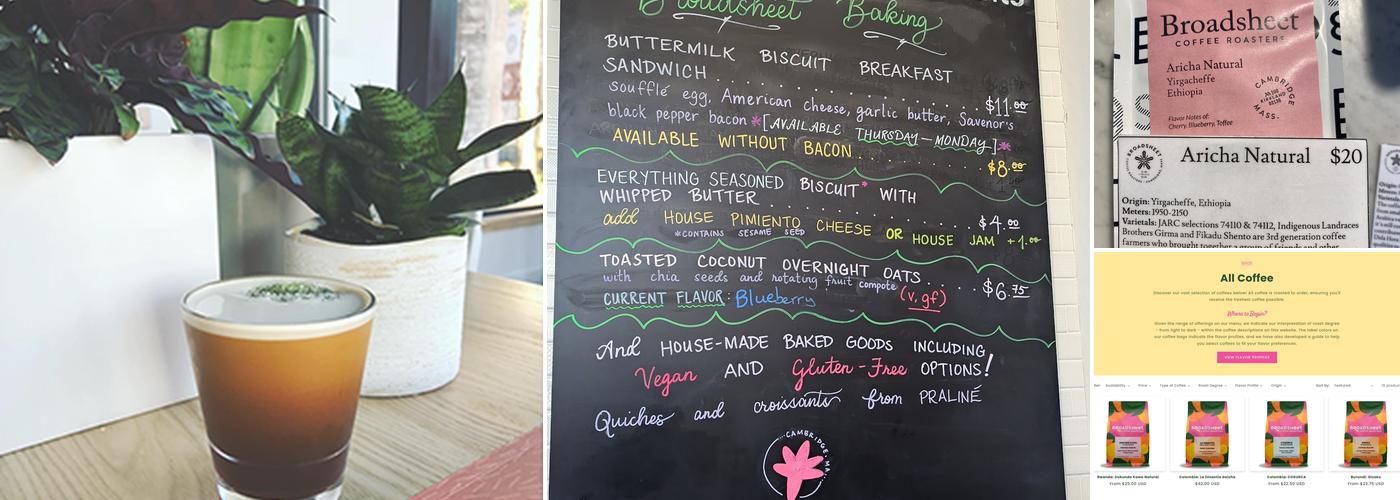 Broadsheet Baking
BUTTERMILK BISCUIT BREAKFAST
SANDWICH . . . . . . . . . . . . . . . $11.00
soufflé egg, American cheese, garlic butter, Savenor's
black pepper bacon *[AVAILABLE THURSDAY-MONDAY]*
AVAILABLE WITHOUT BACON . . . . . . . . $8.00
EVERYTHING SEASONED BISCUIT* WITH
WHIPPED BUTTER . . . . . . . . . . . . $4.00
add HOUSE PIMIENTO CHEESE OR HOUSE JAM +1.00
*CONTAINS SESAME SEED
TOASTED COCONUT OVERNIGHT OATS . . . . $6.75
with chia seeds and rotating fruit compote (v, gf)
CURRENT FLAVOR: Blueberry
And HOUSE-MADE BAKED GOODS INCLUDING
Vegan AND Gluten-Free OPTIONS!
Quiches and croissants from PRALINÉ
CAMBRIDGE, MA.
Broadsheet
COFFEE ROASTERS
Aricha Natural
Yirgacheffe
Ethiopia
CAMBRIDGE
KIRKLAND
02138
MASS.
Flavor Notes of:
Cherry, Blueberry, Toffee
BROADSHEET
Aricha Natural $20
Origin: Yirgacheffe, Ethiopia
Meters: 1950-2150
Varietals: JARC selections 74110 & 74112, Indigenous Landraces
Brothers Girma and Fikadu Shento are 3rd generation coffee
farmers who brought together a group of friends and other
SHOP
All Coffee
Discover our vast selection of coffees below! All coffee is roasted to order, ensuring you'll
receive the freshest coffee possible.
Where to Begin?
Given the range of offerings on our menu, we indicate our interpretation of roast degree
- from light to dark - within the coffee descriptions on this website. The label colors on
our coffee bags indicate the flavor profiles, and we have also developed a guide to help
you select coffees to fit your flavor preferences.
VIEW FLAVOR PROFILES
Availability Price Type of Coffee Roast Degree Flavor Profile Origin Sort by: Featured
BROADSHEET BROADSHEET BROADSHEET BROADSHEET
Rwanda: Dukunde Kawa Natural
From $25.00 USD
$42.00 USD
Colombia: COSURCA
From $22.50 USD
From $23.75 USD